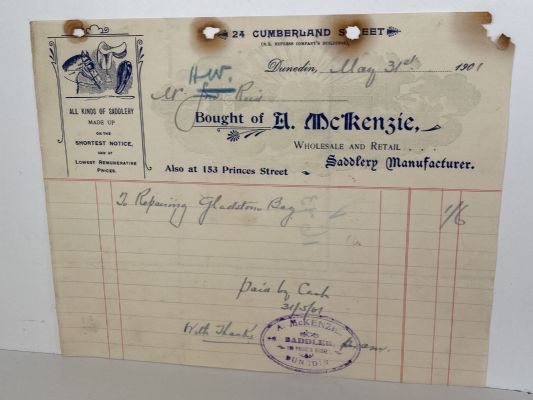 24 CUMBERLAND STREET
(N.Z. EXPRESS COMPANY'S BUILDINGS)
Dunedin, May 31st 1901
H.W.
Mr Reid
ALL KINDS OF SADDLERY
MADE UP
ON THE
SHORTEST NOTICE,
AND AT
LOWEST REMUNERATIVE
PRICES.
Bought of A. McKenzie,
WHOLESALE AND RETAIL . . .
Saddlery Manufacturer.
Also at 153 Princes Street
To Repairing Gladstone Bag 1/6
paid by Cash
31/5/01
With Thanks
A. McKENZIE
SADDLER,
DUNEDIN